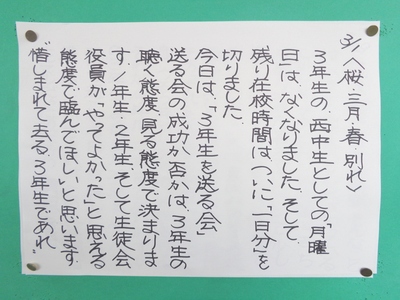 3/1〈桜・三月・春・別れ〉
3年生の、西中生としての「月曜
日」は、なくなりました。そして、
残り在校時間は、ついに、「一日分」を
切りました。
今日は、「3年生を送る会」
送る会の成功か否かは、3年生の
聴く態度、見る態度で決まりま
す。1年生・2年生、そして生徒会
役員が、「やってよかった」と思える
態度で臨んでほしいと思います。
“惜しまれて去る、3年生であれ〟